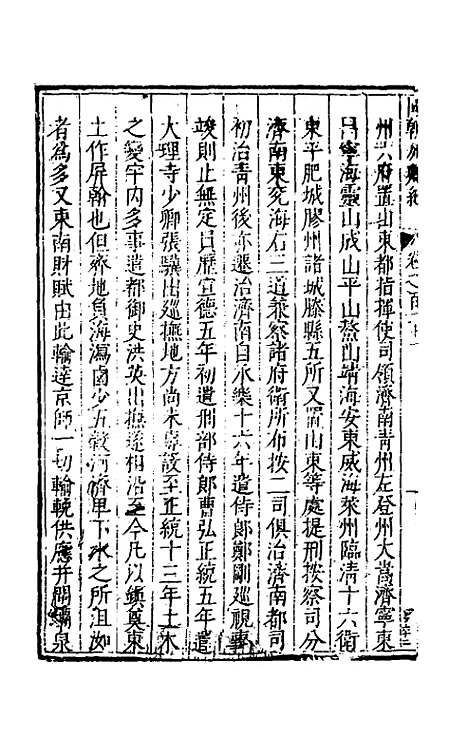 州六府置山東都指揮使司領濟南青州左登州大嵩濟寧東
昌寧海靈山成山平山鰲山靖海安東威海萊州臨清十六衛
東平肥城膠州諸城滕縣五所又置山東等處提刑按察司分
濟南東兖海右三道兼察諸府衛所布按二司俱治濟南都司
初治青州後亦遷治濟南自永樂十六年遣侍郎鄭剛巡視事
竣則止無定員歷宣德五年初遣刑部侍郎曹弘正統五年遣
大理寺少卿張驥出巡撫地方尚未專設至正統十三年土木
之變宇内多事遣都御史洪英出撫遂相沿至今凡以鎮奠東
土作屏翰也但齊地負海瀉鹵少五穀河濟卑下水之所沮洳
者為多又東南財賦由此輸達京師一切輸輓供應井閭